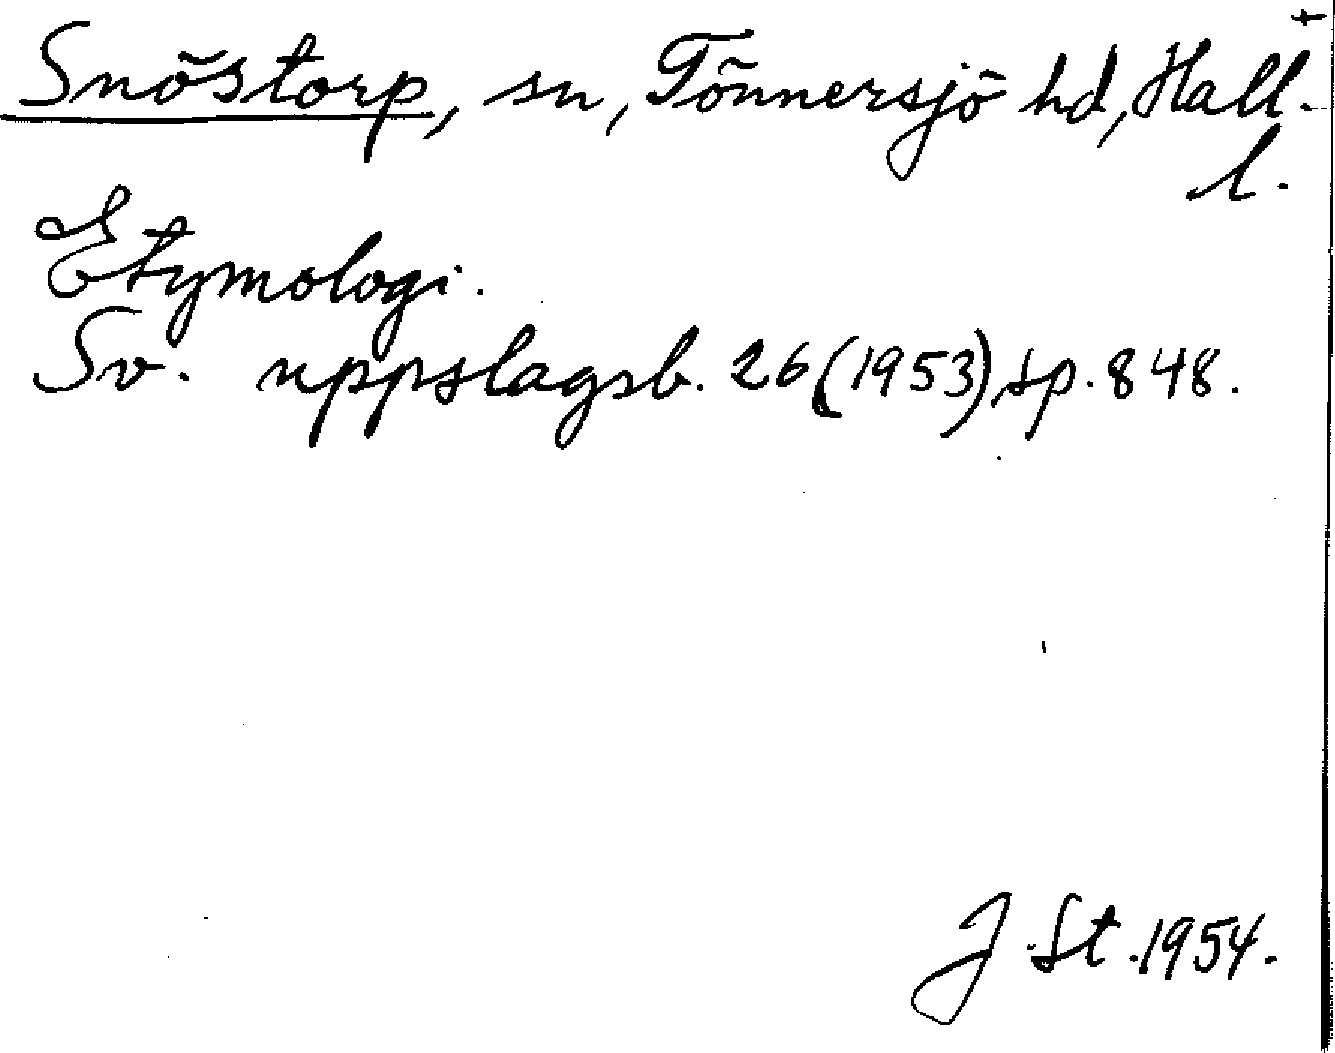 Snöstorp, sn, Tönnersjö hd, Hall.
l.
Etymologi.
Sv. uppslagsb. 26 (1953) sp. 848.
J. St. 1954.